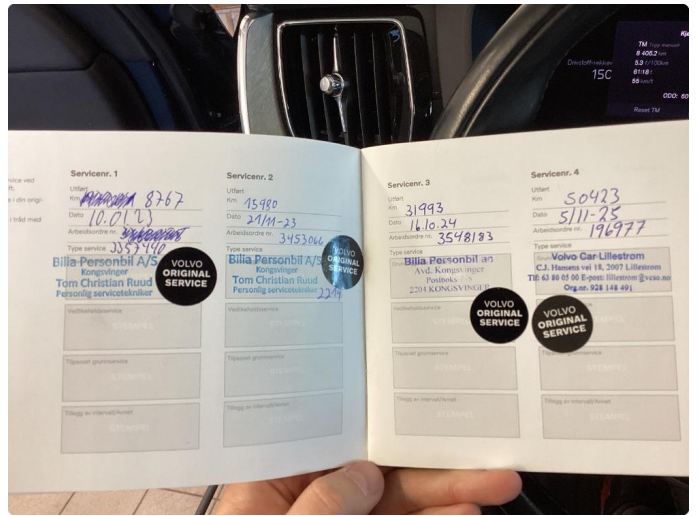 Kj
TM Tripp manuell
8 406.2 km
5.3 l/100km
61:18 t
55 km/t
Drivstoff-rekkev
150
ODO: 60
Reset TM
rvice ved
e i din origi-
i tråd med
Servicenr. 1
Utført
Km 8767
Dato 10.01.23
Arbeidsordre nr.
Type service 3357140
Bilia Personbil A/S
Kongsvinger
Tom Christian Ruud
Personlig servicetekniker
VOLVO
ORIGINAL
SERVICE
Vedlikeholdsservice
STEMPEL
Tilpasset grunnservice
STEMPEL
Tillegg av intervall/Annet
STEMPEL
Servicenr. 2
Utført
Km 15980
Dato 21/11-23
Arbeidsordre nr. 3453066
Type service
Bilia Personbil A/S
Kongsvinger
Tom Christian Ruud
Personlig servicetekniker
VOLVO
ORIGINAL
SERVICE
Vedlikeholdsservice
STEMPEL
Tilpasset grunnservice
STEMPEL
Tillegg av intervall/Annet
STEMPEL
Servicenr. 3
Utført
Km 31993
Dato 16.10.24
Arbeidsordre nr. 3548183
Type service
Bilia Personbil as
Avd. Kongsvinger
Postboks
2204 KONGSVINGER
VOLVO
ORIGINAL
SERVICE
Vedlikeholdsservice
STEMPEL
Tilpasset grunnservice
STEMPEL
Tillegg av intervall/Annet
STEMPEL
Servicenr. 4
Utført
Km 50423
Dato 5/11-25
Arbeidsordre nr. 196977
Type service
Volvo Car Lillestrøm
C.J. Hansens vei 18, 2007 Lillestrøm
Tlf: 63 80 05 00 E-post: lillestrom@vcso.no
Org.nr. 928 148 491
VOLVO
ORIGINAL
SERVICE
Vedlikeholdsservice
Tilpasset grunnservice
STEMPEL
Tillegg av intervall/Annet
STEMPEL